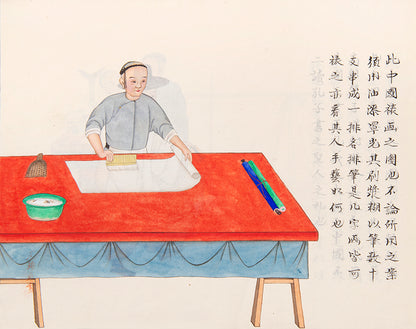 此中國裱画之圖也不論用之業
猶用油漆罩光其刷漿糊以筆數十
支串成一排名排筆是凡字画皆可
裱之亦看其人手藝如何也